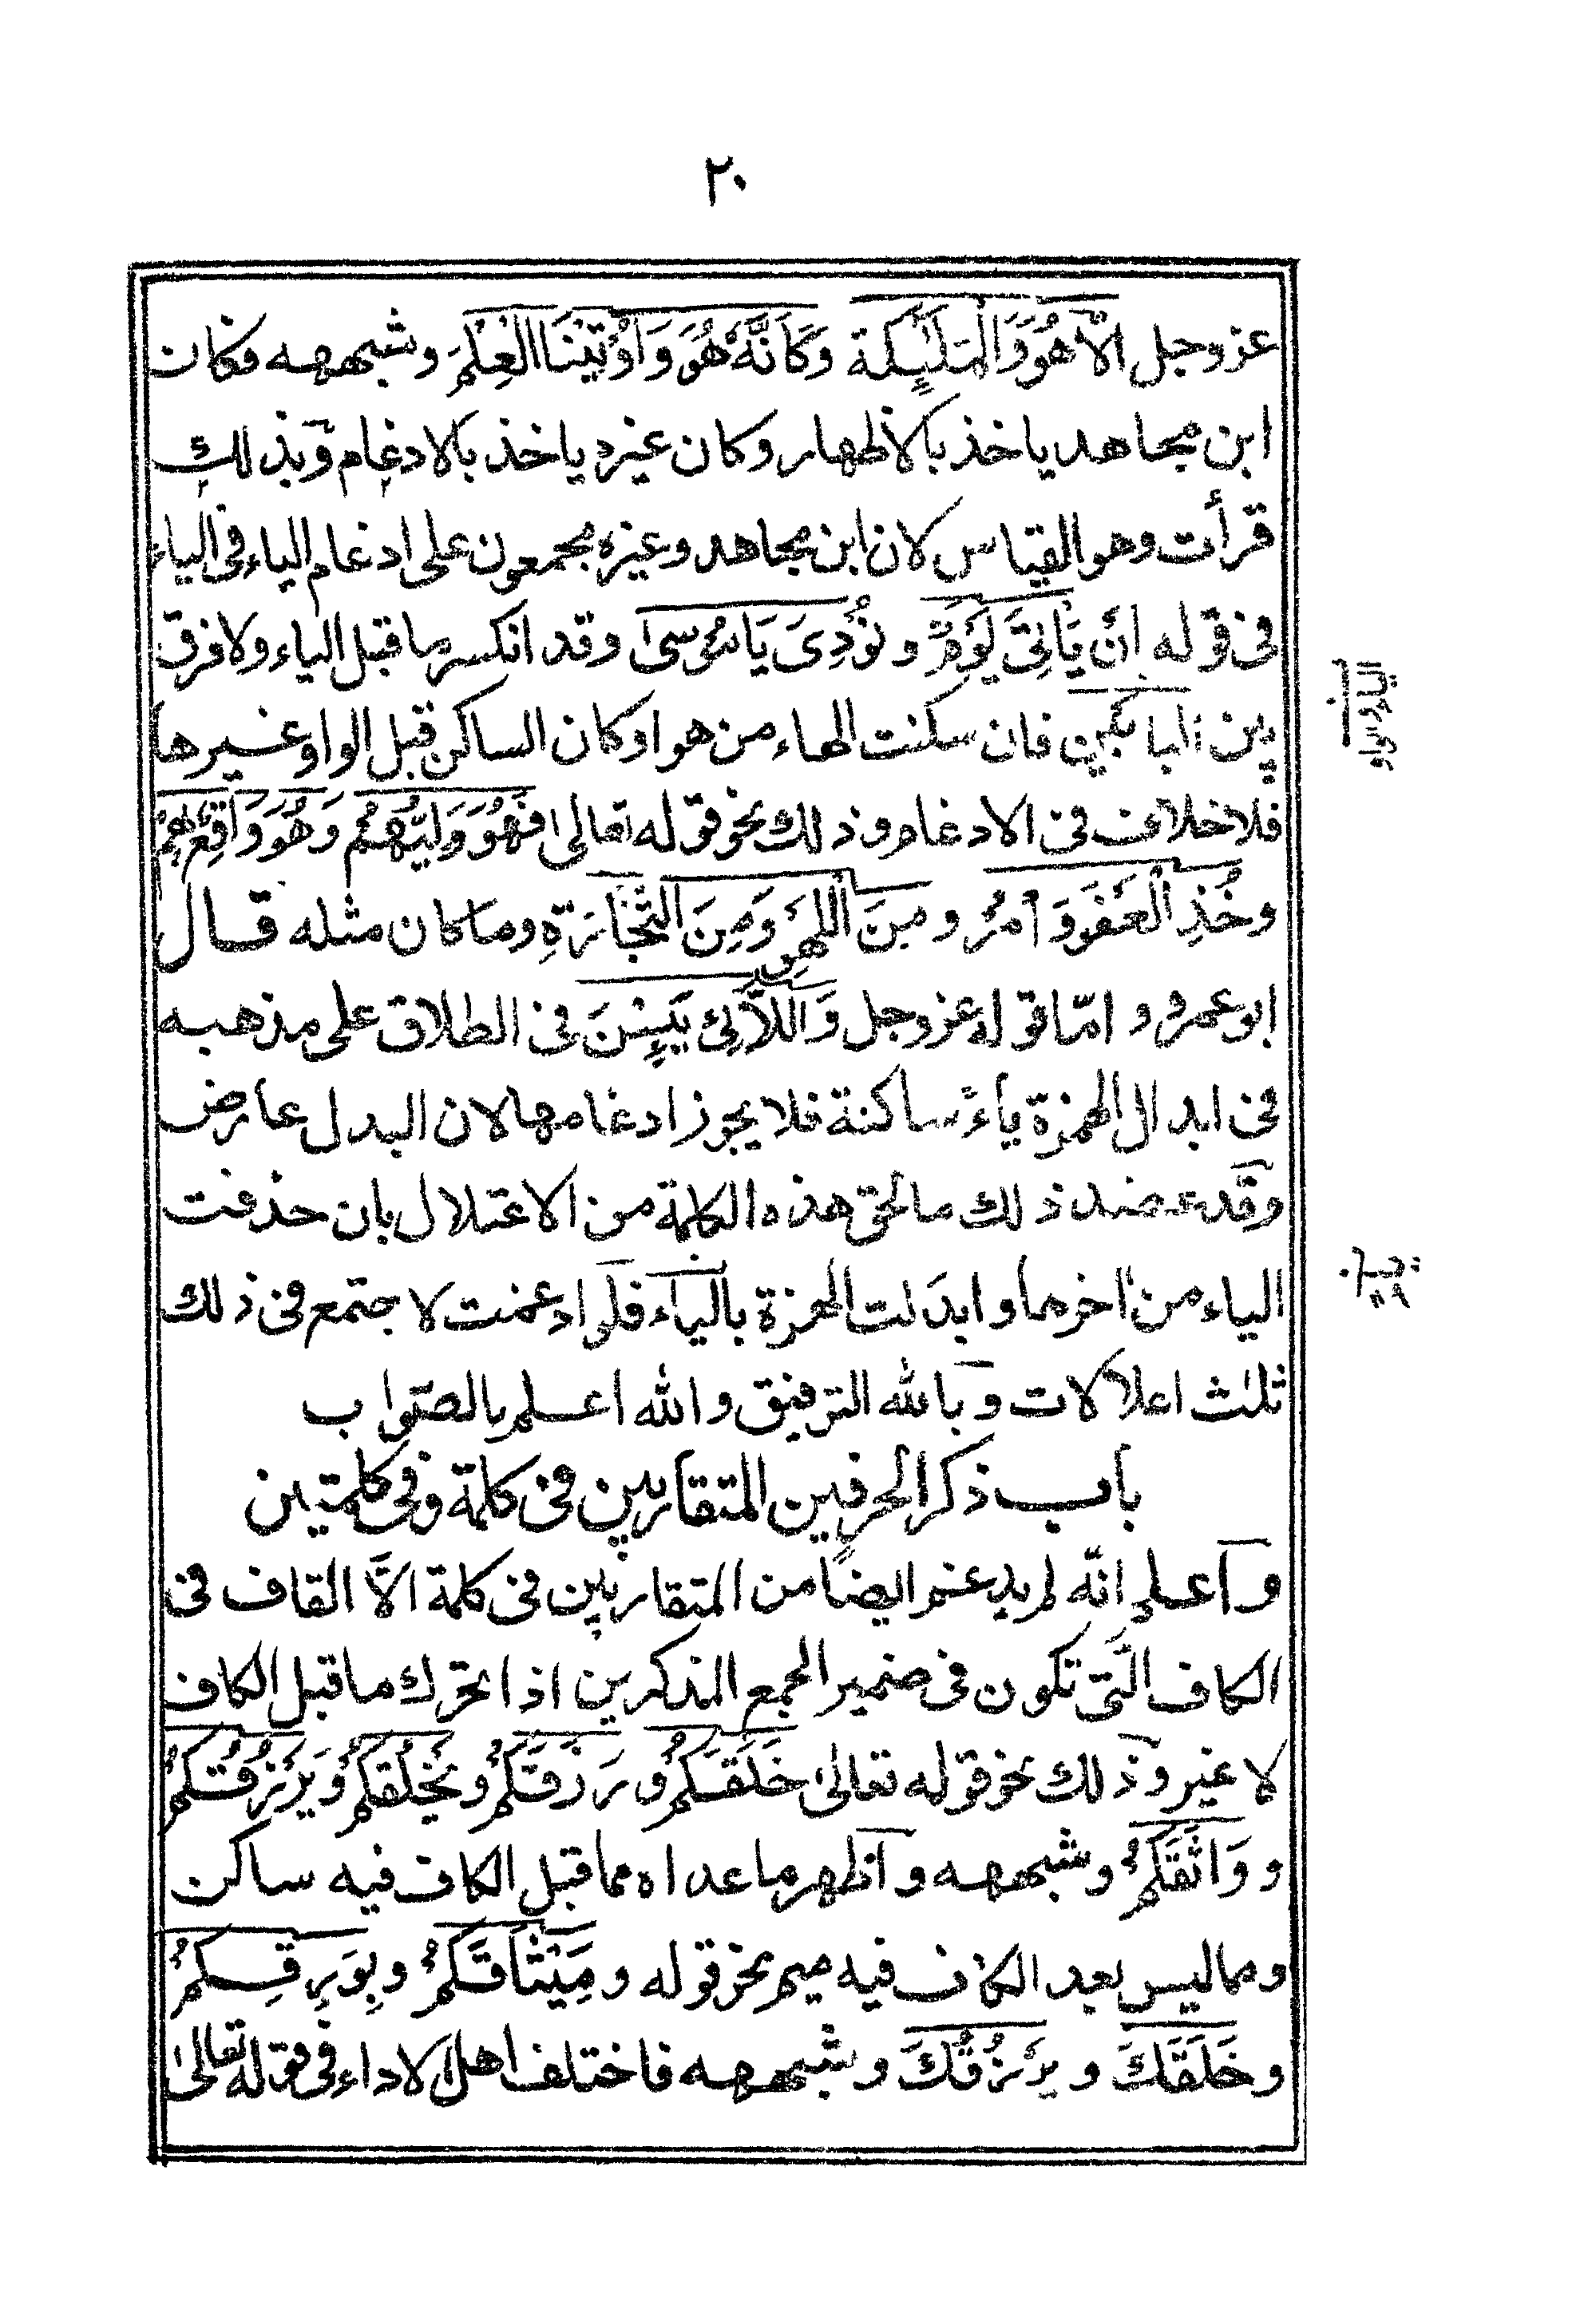 ٢٠
عز وجل الّا هُوَ وَالْمَلٰٓئِكة وَكَاَنَّهُ هُوَ وَاُوْتِيْنَا الْعِلْمَ وشبهه فكان
ابن مجاهد ياخذ بالاظهار وكان غيره ياخذ بالادغام وبذلك
قرأت وهو القياس لان ابن مجاهد وغيره مجمعون على ادغام الياء فى الياء
فى قوله اَنْ يَّاتِىَ يَوْمٌ و نُوْدِىَ يَا مُوْسىٰ وقد انكسر ما قبل الياء ولا فرق
بين البابين فان سكنت الهاء من هو او كان الساكن قبل الواو غيرها
فلا خلاف فى الادغام وذلك نحو قوله تعالى فَهُوَ وَلِيُّهُمُ وَهُوَ وَاقِعٌ بِهِمْ
وخُذِ الْعَفْوَ وَأْمُرْ و مِنَ اللَّهْوِ وَمِنَ التِّجَارَةِ وما كان مثله قال
ابو عمرو و امّا قوله عز وجل وَاللَّائِىْ يَئِسْنَ فى الطلاق على مذهبه
فى ابدال الهمزة ياءً ساكنة فلا يجوز ادغامها لان البدل عارض
وقد عضد ذلك ما لحق هذه الكلمة من الاعتلال بان حذفت
الياء من اخرها و ابدلت الهمزة بالياء فلو ادغمت لاجتمع فى ذلك
ثلث اعلالات وبالله التوفيق والله اعلم بالصّواب
باب ذكر الحرفين المتقاربين فى كلمة وفى كلمتين
واعلم انّه لم يدغم ايضًا من المتقاربين فى كلمة الاَّ القاف فى
الكاف الّتى تكون فى ضمير الجمع المذكرين اذا تحرك ما قبل الكاف
لا غير وذلك نحو قوله تعالىٰ خَلَقَكُمْ و رَزَقَكُمْ و يَخْلُقُكُمْ وَيَرْزُقُكُمْ
و وَاثَقَكُمْ وشبهه و اظهر ما عداه مما قبل الكاف فيه ساكن
ومما ليس بعد الكاف فيه ميم نحو قوله و مِيْثَاقَكُمْ و بِوَرِقِكُمْ
و خَلَقَكَ و يَرْزُقُكَ و شبهه فاختلف اهل الاداء فى قوله تعالىٰ